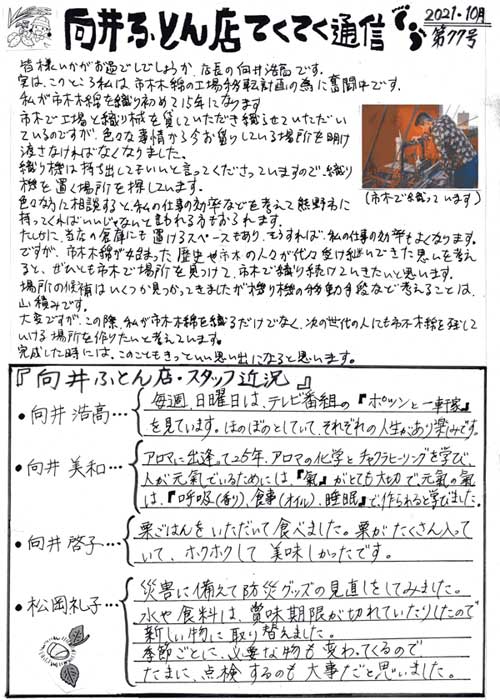 向井ふとん店てくてく通信
2021・10月
第77号
皆様いかがお過ごしでしょうか、店長の向井浩高です。
実は、このところ私は市木木綿の工場移転計画の為に奮闘中です。
私が市木木綿を織り初めて15年になります
市木で工場と織り機を貸していただき織らせていただいて
いるのですが、色々な事情から今お借りしている場所を明け
渡さなければなくなりました。
織り機は持ち出してもいいと言ってくださっていますので、織り
機を置く場所を探しています。
色々な方に相談すると、私の仕事の効率などを考えて熊野市に
持ってくればいいじゃないと言われる方もおられます。
たしかに、当店の倉庫にも置けるスペースもあり、そうすれば、私の仕事の効率もよくなります。
ですが、市木木綿が始まった歴史や市木の人々が代々受け継いできた思いを考え
ると、ぜひとも市木で場所を見つけて、市木で織り続けていきたいと思います。
場所の候補はいくつか見つかってきましたが織り機の移動手段など考えることは、
山積みです。
大変ですが、この際、私が市木木綿を織るだけでなく、次の世代の人にも市木木綿を残して
いける場所を作りたいと考えています。
完成した時には、このこともきっといい思い出になると思います。
(市木で織っています)
『向井ふとん店・スタッフ近況』
●向井 浩高…
毎週、日曜日は、テレビ番組の『ポツンと一軒家』
を見ています。ほのぼのとしていて、それぞれの人生があり楽しみです。
●向井 美和…
アロマに出逢って25年、アロマの化学とチャクラヒーリングを学び、
人が元氣でいるためには、『氣』がとても大切で元氣の氣
は、『呼吸(香り)、食事(オイル)、睡眠』で作られると学びました。
●向井 啓子…
栗ごはんをいただいて食べました。栗がたくさん入って
いて、ホクホクして美味しかったです。
●松岡 礼子…
災害に備えて防災グッズの見直しをしてみました。
水や食料は、賞味期限が切れていたりしたので
新しい物に取り替えました。
季節ごとに、必要な物も変わってくるので
たまに、点検するのも大事だと思いました。